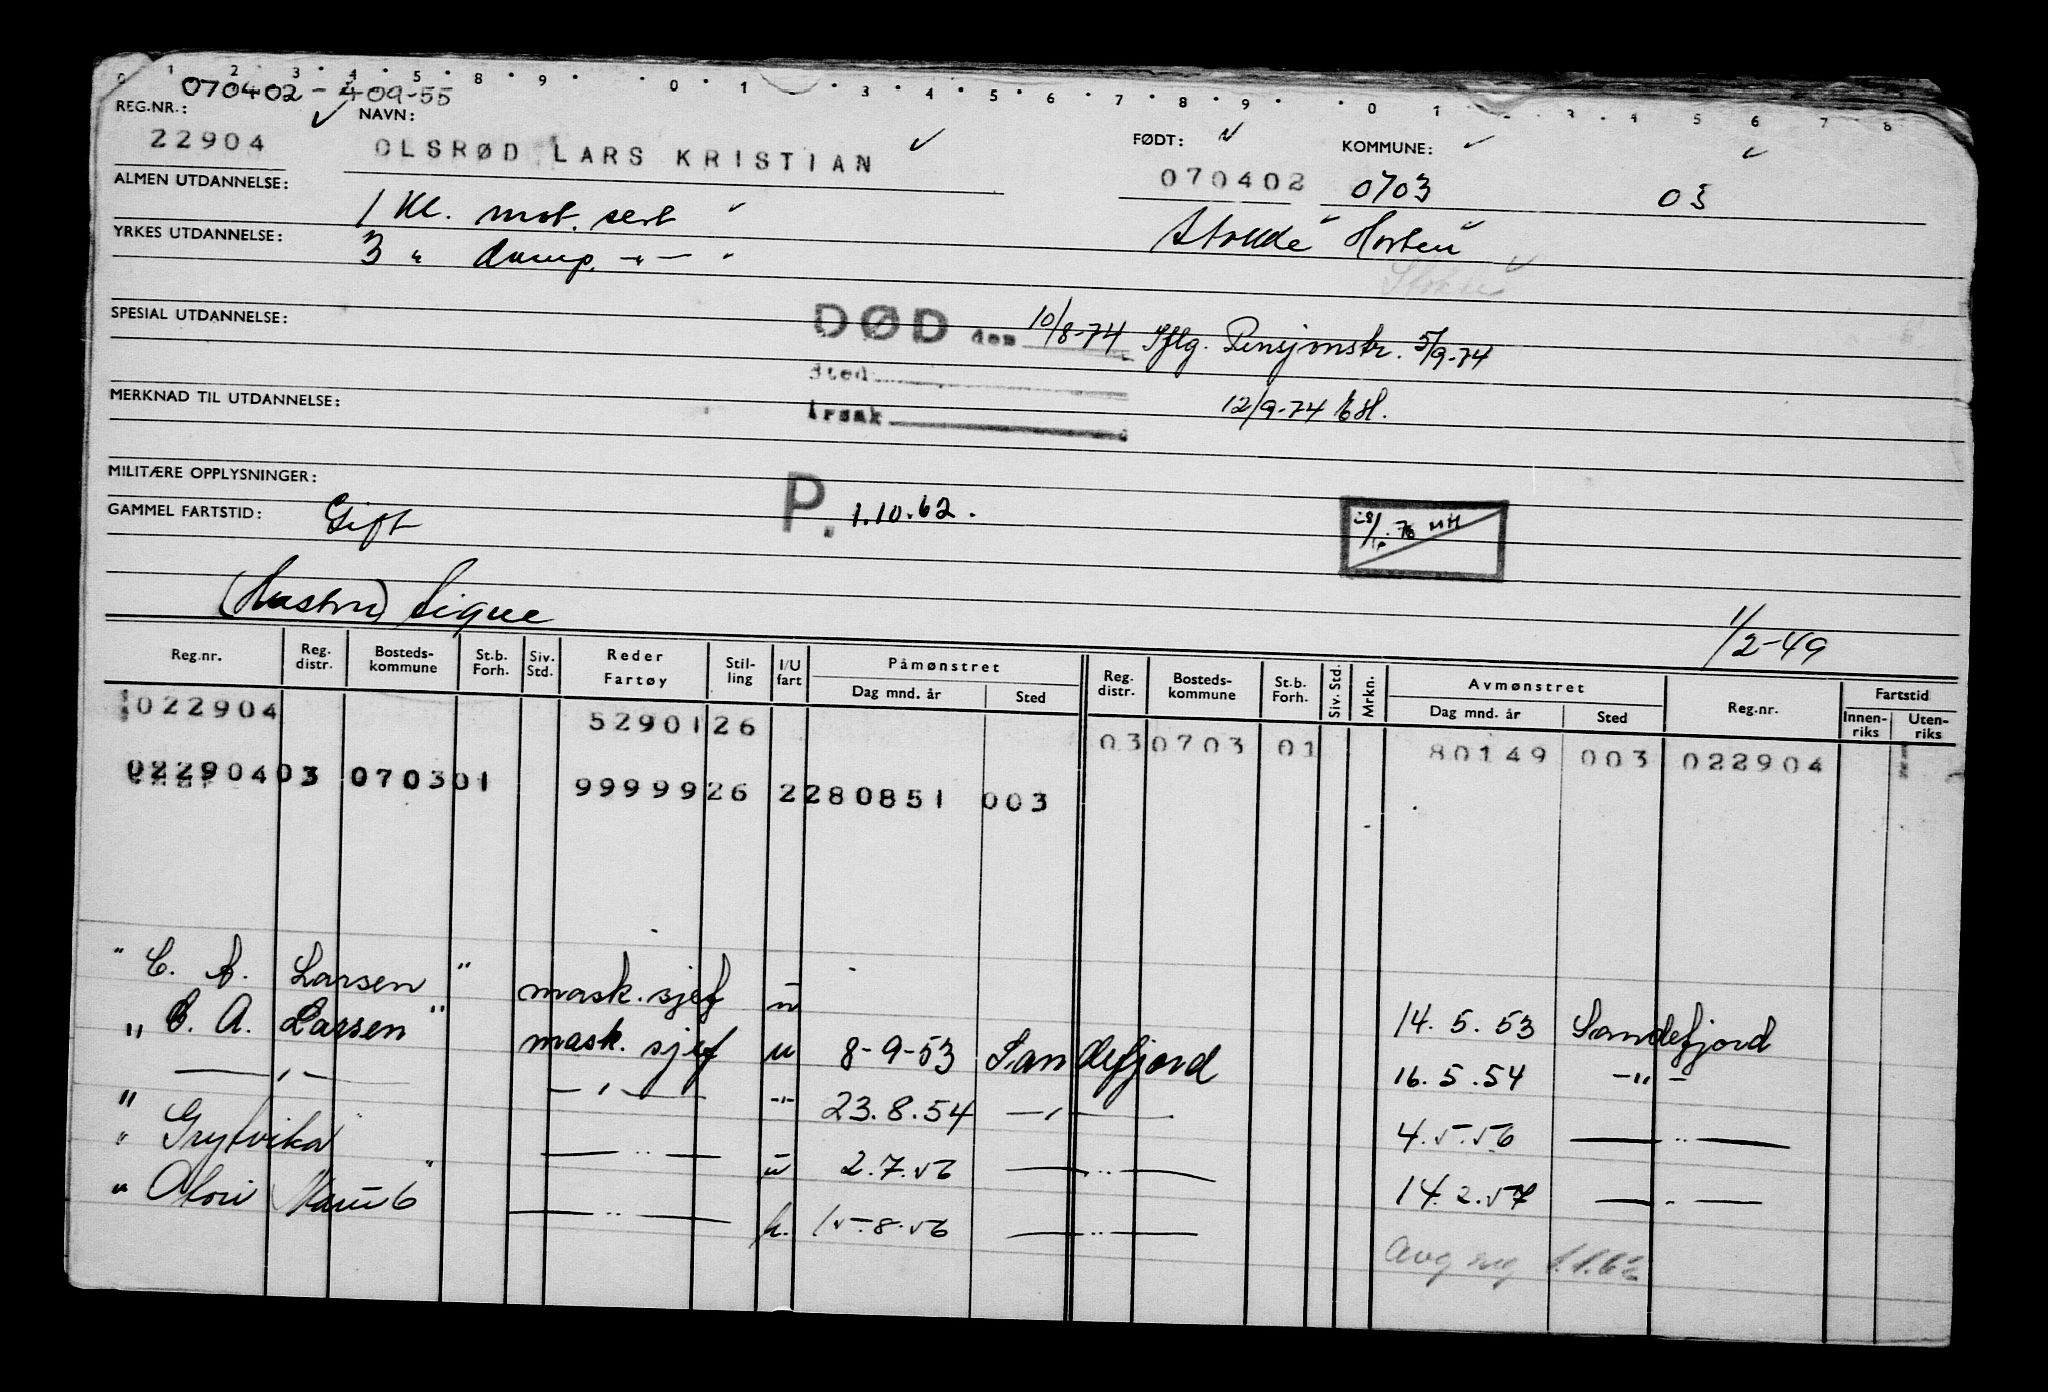 0 1 2 3 4 5 8 9 0 1 3 4 5 6 7 8 9 0 1 3 4 5 6 7 8
070402 - 409-55
REG.NR.: NAVN: FØDT: KOMMUNE:
22904 OLSRØD LARS KRISTIAN 070402 0703 03
ALMEN UTDANNELSE: 1 Kl. mot. sert
Stokke Horten
YRKES UTDANNELSE: 3 " damp. -"-
Stokke
SPESIAL UTDANNELSE: DØD den 10/8-74 Iflg. Pensjonstr. 5/9-74
Sted
MERKNAD TIL UTDANNELSE: Årsak 12/9-74
MILITÆRE OPPLYSNINGER:
GAMMEL FARTSTID: Gift P. 1.10.62.
(Hustru) Signe
1/2-49
Reg.nr. Reg. distr. Bosteds-kommune St.b. Forh. Siv. Std. Reder Fartøy Stil-ling I/U fart Påmønstret Dag mnd. år Sted Reg. distr. Bosteds-kommune St.b. Forh. Siv. Std. Mrkn. Avmønstret Dag mnd. år Sted Reg.nr. Fartstid Innen-riks Uten-riks
022904 5290126 03 0703 01 80149 003 022904
02290403 070301 9999926 2280851 003
" C. A. Larsen " mask. sjef u 14. 5. 53 Sandefjord
" C. A. Larsen " mask. sjef u 8-9-53 Sandefjord 16. 5. 54 -"-
" -"- -"- -"- 23. 8. 54 -"- 4. 5. 56 -"-
" Grytvika -"- u 2. 7. 56 -"- 14. 2. 57 -"-
" Thor " -"- h. 15-8-56 -"-
Avg reg 1.1.62